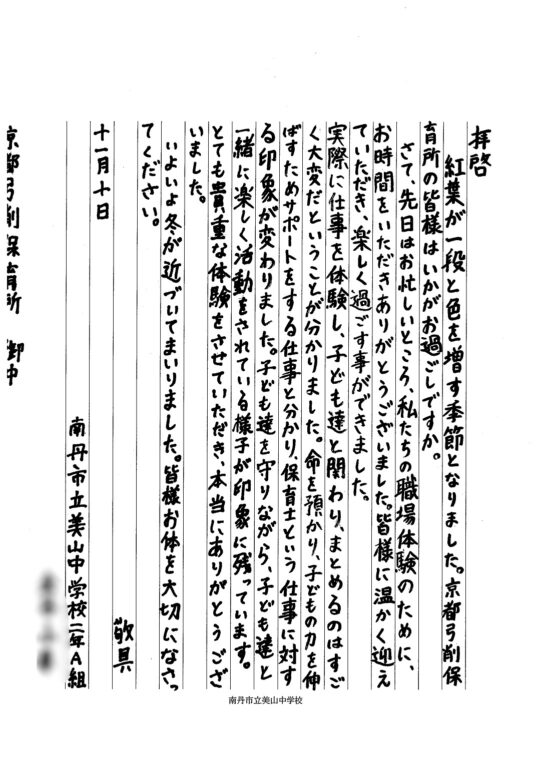 拝啓
紅葉が一段と色を増す季節となりました。京都弓削保
育所の皆様はいかがお過ごしですか。
さて、先日はお忙しいところ、私たちの職場体験のために、
お時間をいただきありがとうございました。皆様に温かく迎え
ていただき、楽しく過ごす事ができました。
実際に仕事を体験し、子ども達と関わり、まとめるのはすご
く大変だということが分かりました。命を預かり、子どもの力を伸
ばすためサポートをする仕事と分かり、保育士という仕事に対す
る印象が変わりました。子ども達を守りながら、子ども達と
一緒に楽しく活動をされている様子が印象に残っています。
とても貴重な体験をさせていただき、本当にありがとうござ
いました。
いよいよ冬が近づいてまいりました。皆様お体を大切になさっ
てください。
敬具
十一月十日
南丹市立美山中学校二年A組
京都弓削保育所 御中
南丹市立美山中学校